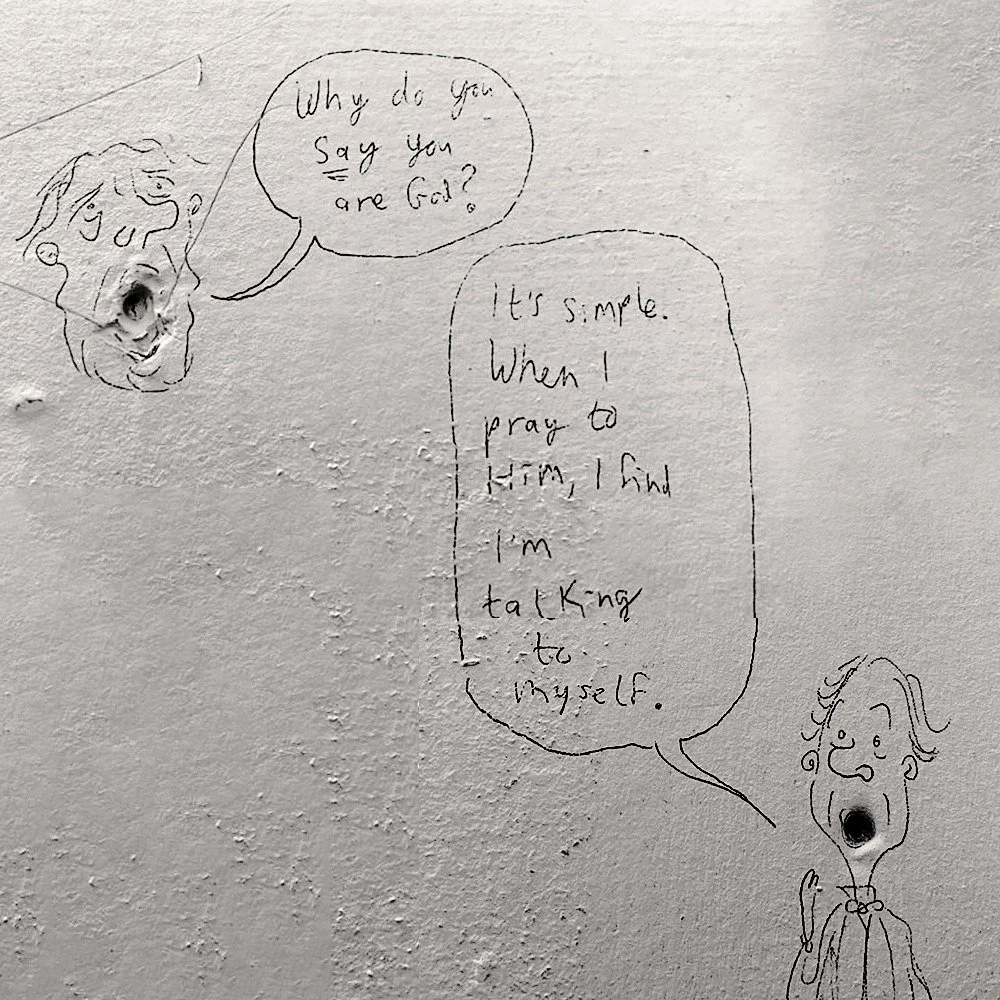 Why do you
say you
are God?
It's simple.
When I
pray to
Him, I find
I'm
talking
to
myself.